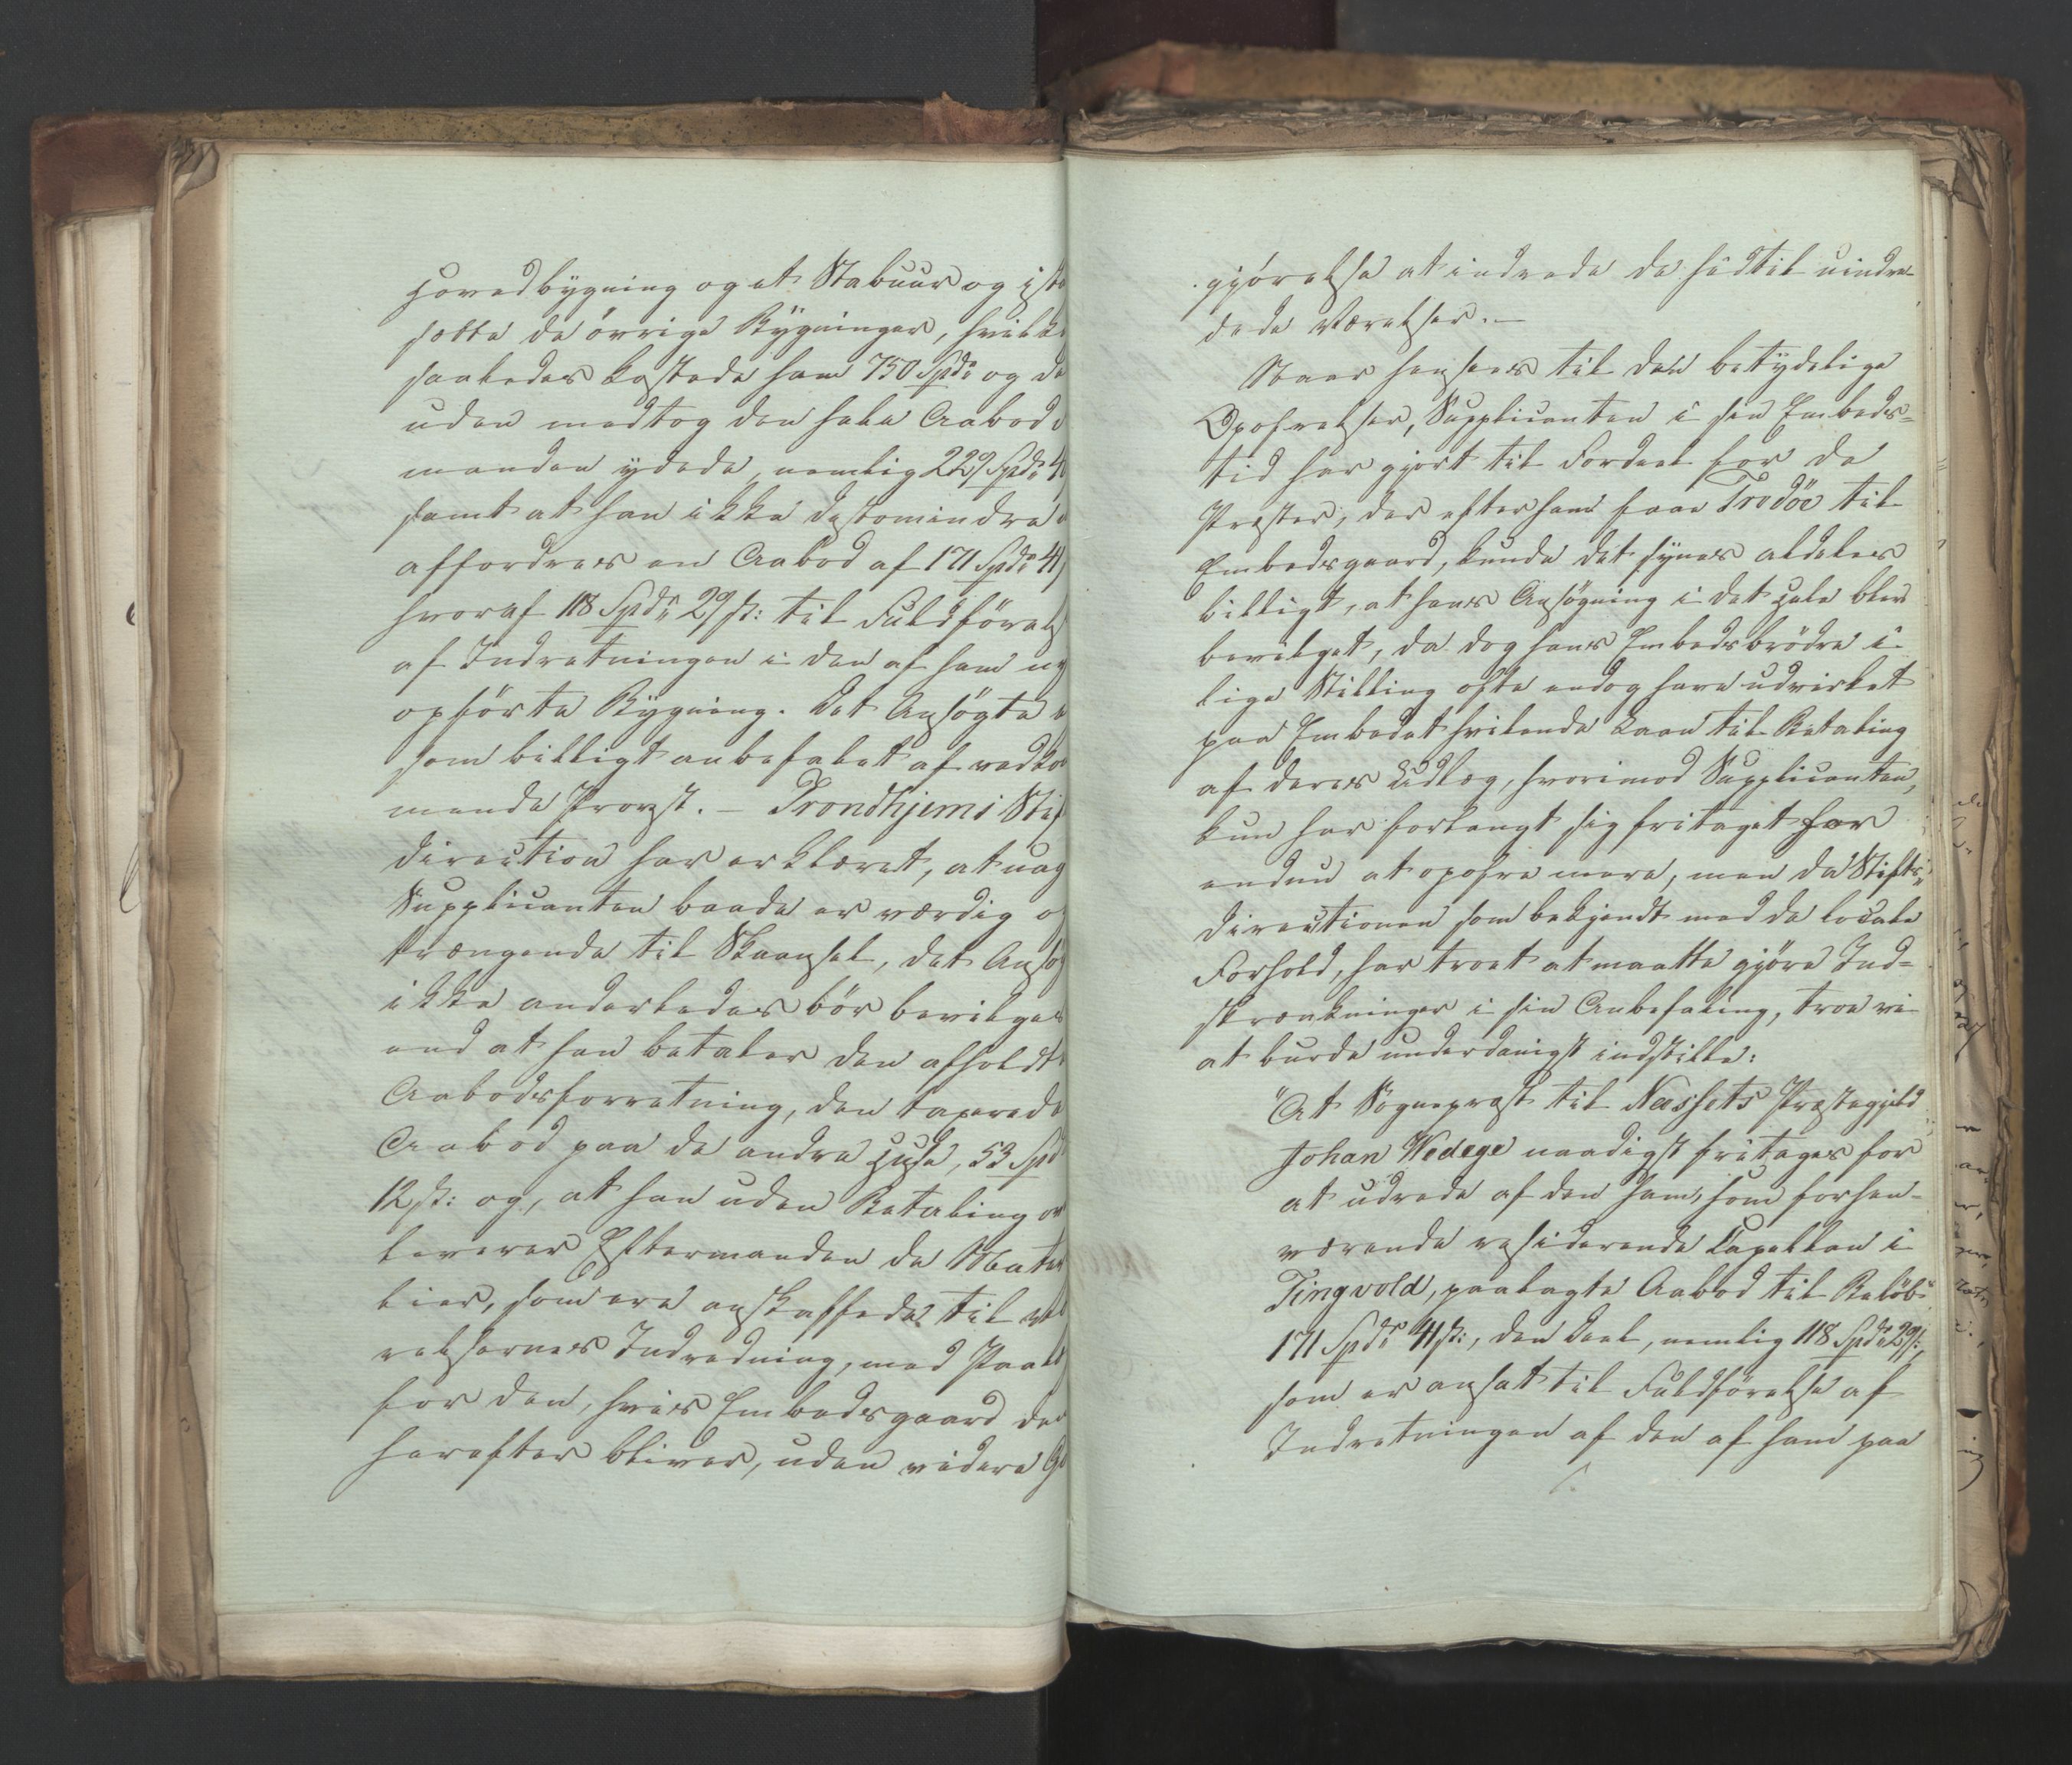 Hovedbygning og et Stabuur og istand
sætte de övrige Bygninger, hvilket
saaledes kostede ham 750 Spd: og des
uden modtog den hele Aabod
manden ydede, nemlig 229 Spd: 4
samt at han ikke destomindre
affordres en Aabod af 171 Spd: 41
hvoraf 118 Spd: 29 s: til Fuldförels
af Indretningen i den af ham ny
opförte Bygning. Det Ansögte er
som billigt anbefalet af vedkom
mende Provst. – Trondhjems Stif
direction har erklæret, at uag
Supplicanten baade er værdig og
trængende til Skaansel, det Ansög
ikke anderledes bör bevilges
end at han betaler den afholdte
Aabodsforretning, den taxerede
Aabod paa de andre Huse, 53 Spd
12 s: og, at han uden Betaling over
leverer Eftermanden de Mater
lier, som ere anskaffede til Væ
relsernes Indredning, med Paal
for den, hvis Embedsgaard den
herefter bliver, uden videre Go
gjörelse at indrede de hidtil uindre
dede Værelser. –
Naar henseees til den betydelige
Opofrelser, Supplicanten i sin Embeds-
tid har gjort til Fordeel for de
Præster, der efter ham faae Trodöe til
Embedsgaard, kunde det synes aldeles
billigt, at hans Ansögning i det Hele blev
bevilget, da dog hans Embedsbrödre i
lige Stilling ofte endog have udvirket
paa Embedet hvilende Laan til Betaling
af deres Udlæg, hvorimod Supplicanten,
kun har forlangt sig fritaget for
endnu at opofre mere, men da Stifts-
directionen som bekjendt med de locale
Forhold, har troet at maatte gjöre Ind-
skrænkninger i sin Anbefaling, troe vi
at burde underdanigst indstille:
"At Sognepræst til Næssets Præstegjeld
Johan Wedege naadigst fritages for
at udrede af den ham, som forhen-
værende residerende Capellan i
Tingvold, paalagte Aabod til Belöb
171 Spd: 41 s:, den Deel, nemlig 118 Spd: 29 s:,
som er ansat til Fuldförelse af
Indretningen af den af ham paa